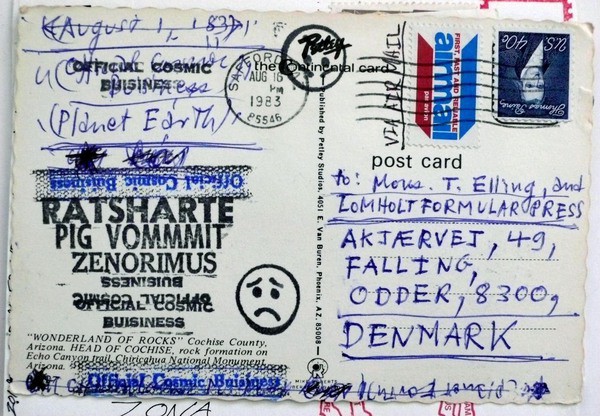 (August 1, 1837)
OFFICIAL COSMIC
BUISINESS
(Planet Earth)
Official Cosmic Business
RATSHARTE
PIG VOMMMIT
ZENORIMUS
BUISINESS
OFFICIAL COSMIC
OFFICIAL COSMIC
BUISINESS
"WONDERLAND OF ROCKS" Cochise County,
Arizona. HEAD OF COCHISE, rock formation on
Echo Canyon trail, Chiricahua National Monument,
Arizona.
Official Cosmic Business
ZONA
SAFFORD
AUG 16
PM
1983
85546
Petley
the continental card
Published by Petley Studios, 4051 E. Van Buren, Phoenix, AZ. 85008
VIA AIR MAIL
FIRST, FAST AND RELIABLE
airmail
par avion
U.S. 40c
Thomas Paine
post card
to: Mons. T. Elling, and
LOMHOLT FORMULAR PRESS
AKJÆRVEJ, 49,
FALLING,
ODDER, 8300,
DENMARK